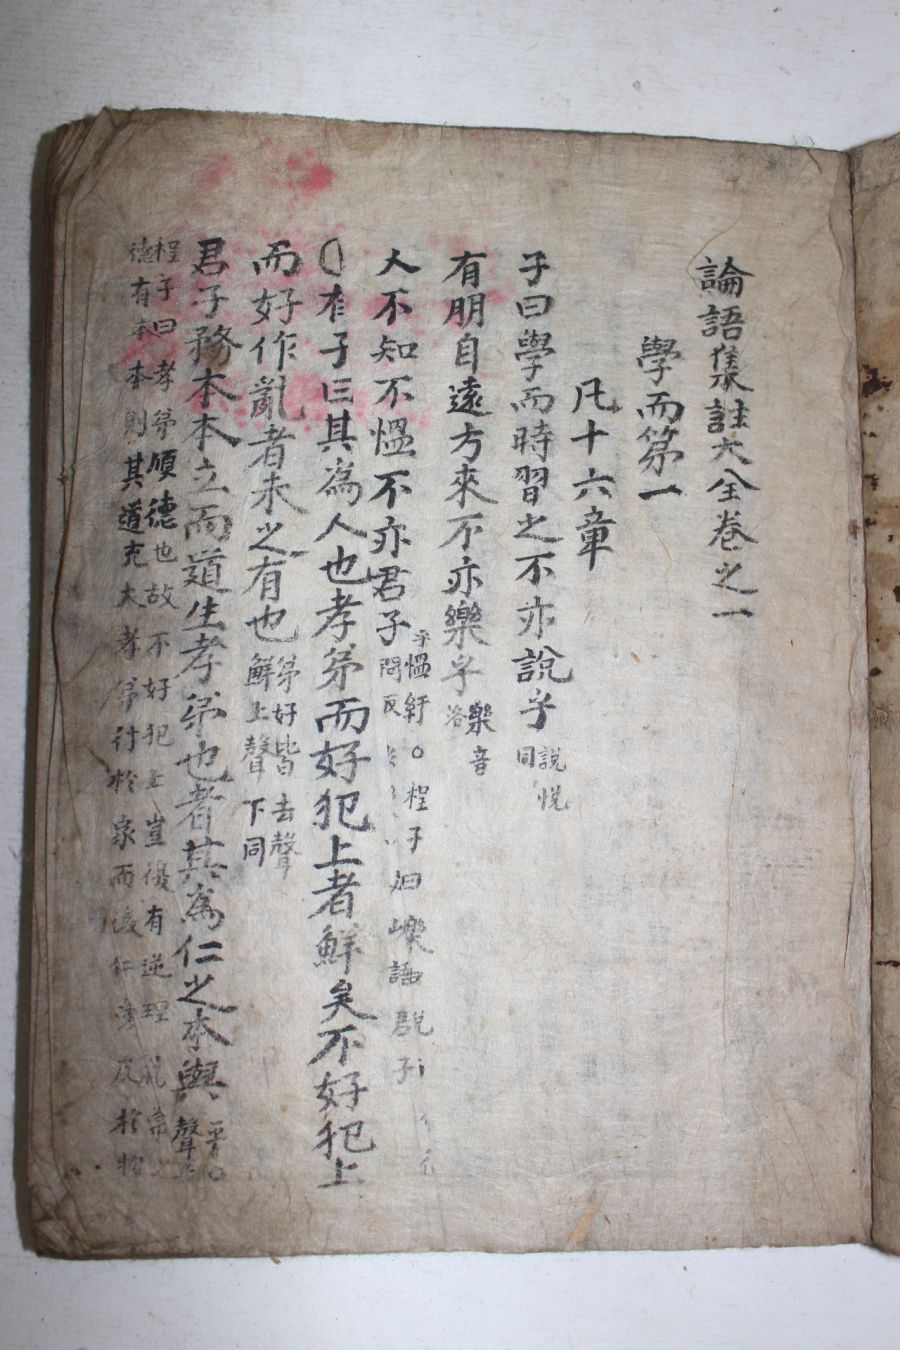 論語集註大全卷之一
學而第一
凡十六章
子曰學而時習之不亦說乎 說悅
同
有朋自遠方來不亦樂乎 樂音
洛
人不知不慍不亦君子 乎慍紆○程子曰樂 說 子
問反 語 君子
〇有子曰其爲人也孝弟而好犯上者鮮矣不好犯上
而好作亂者未之有也 弟好皆去聲
鮮上聲下同
君子務本本立而道生孝弟也者其爲仁之本與 平○
聲
程子曰孝弟順德也故不好犯上豈復有逆理亂常
德有本本則其道充大孝弟行於家而後仁愛及於物